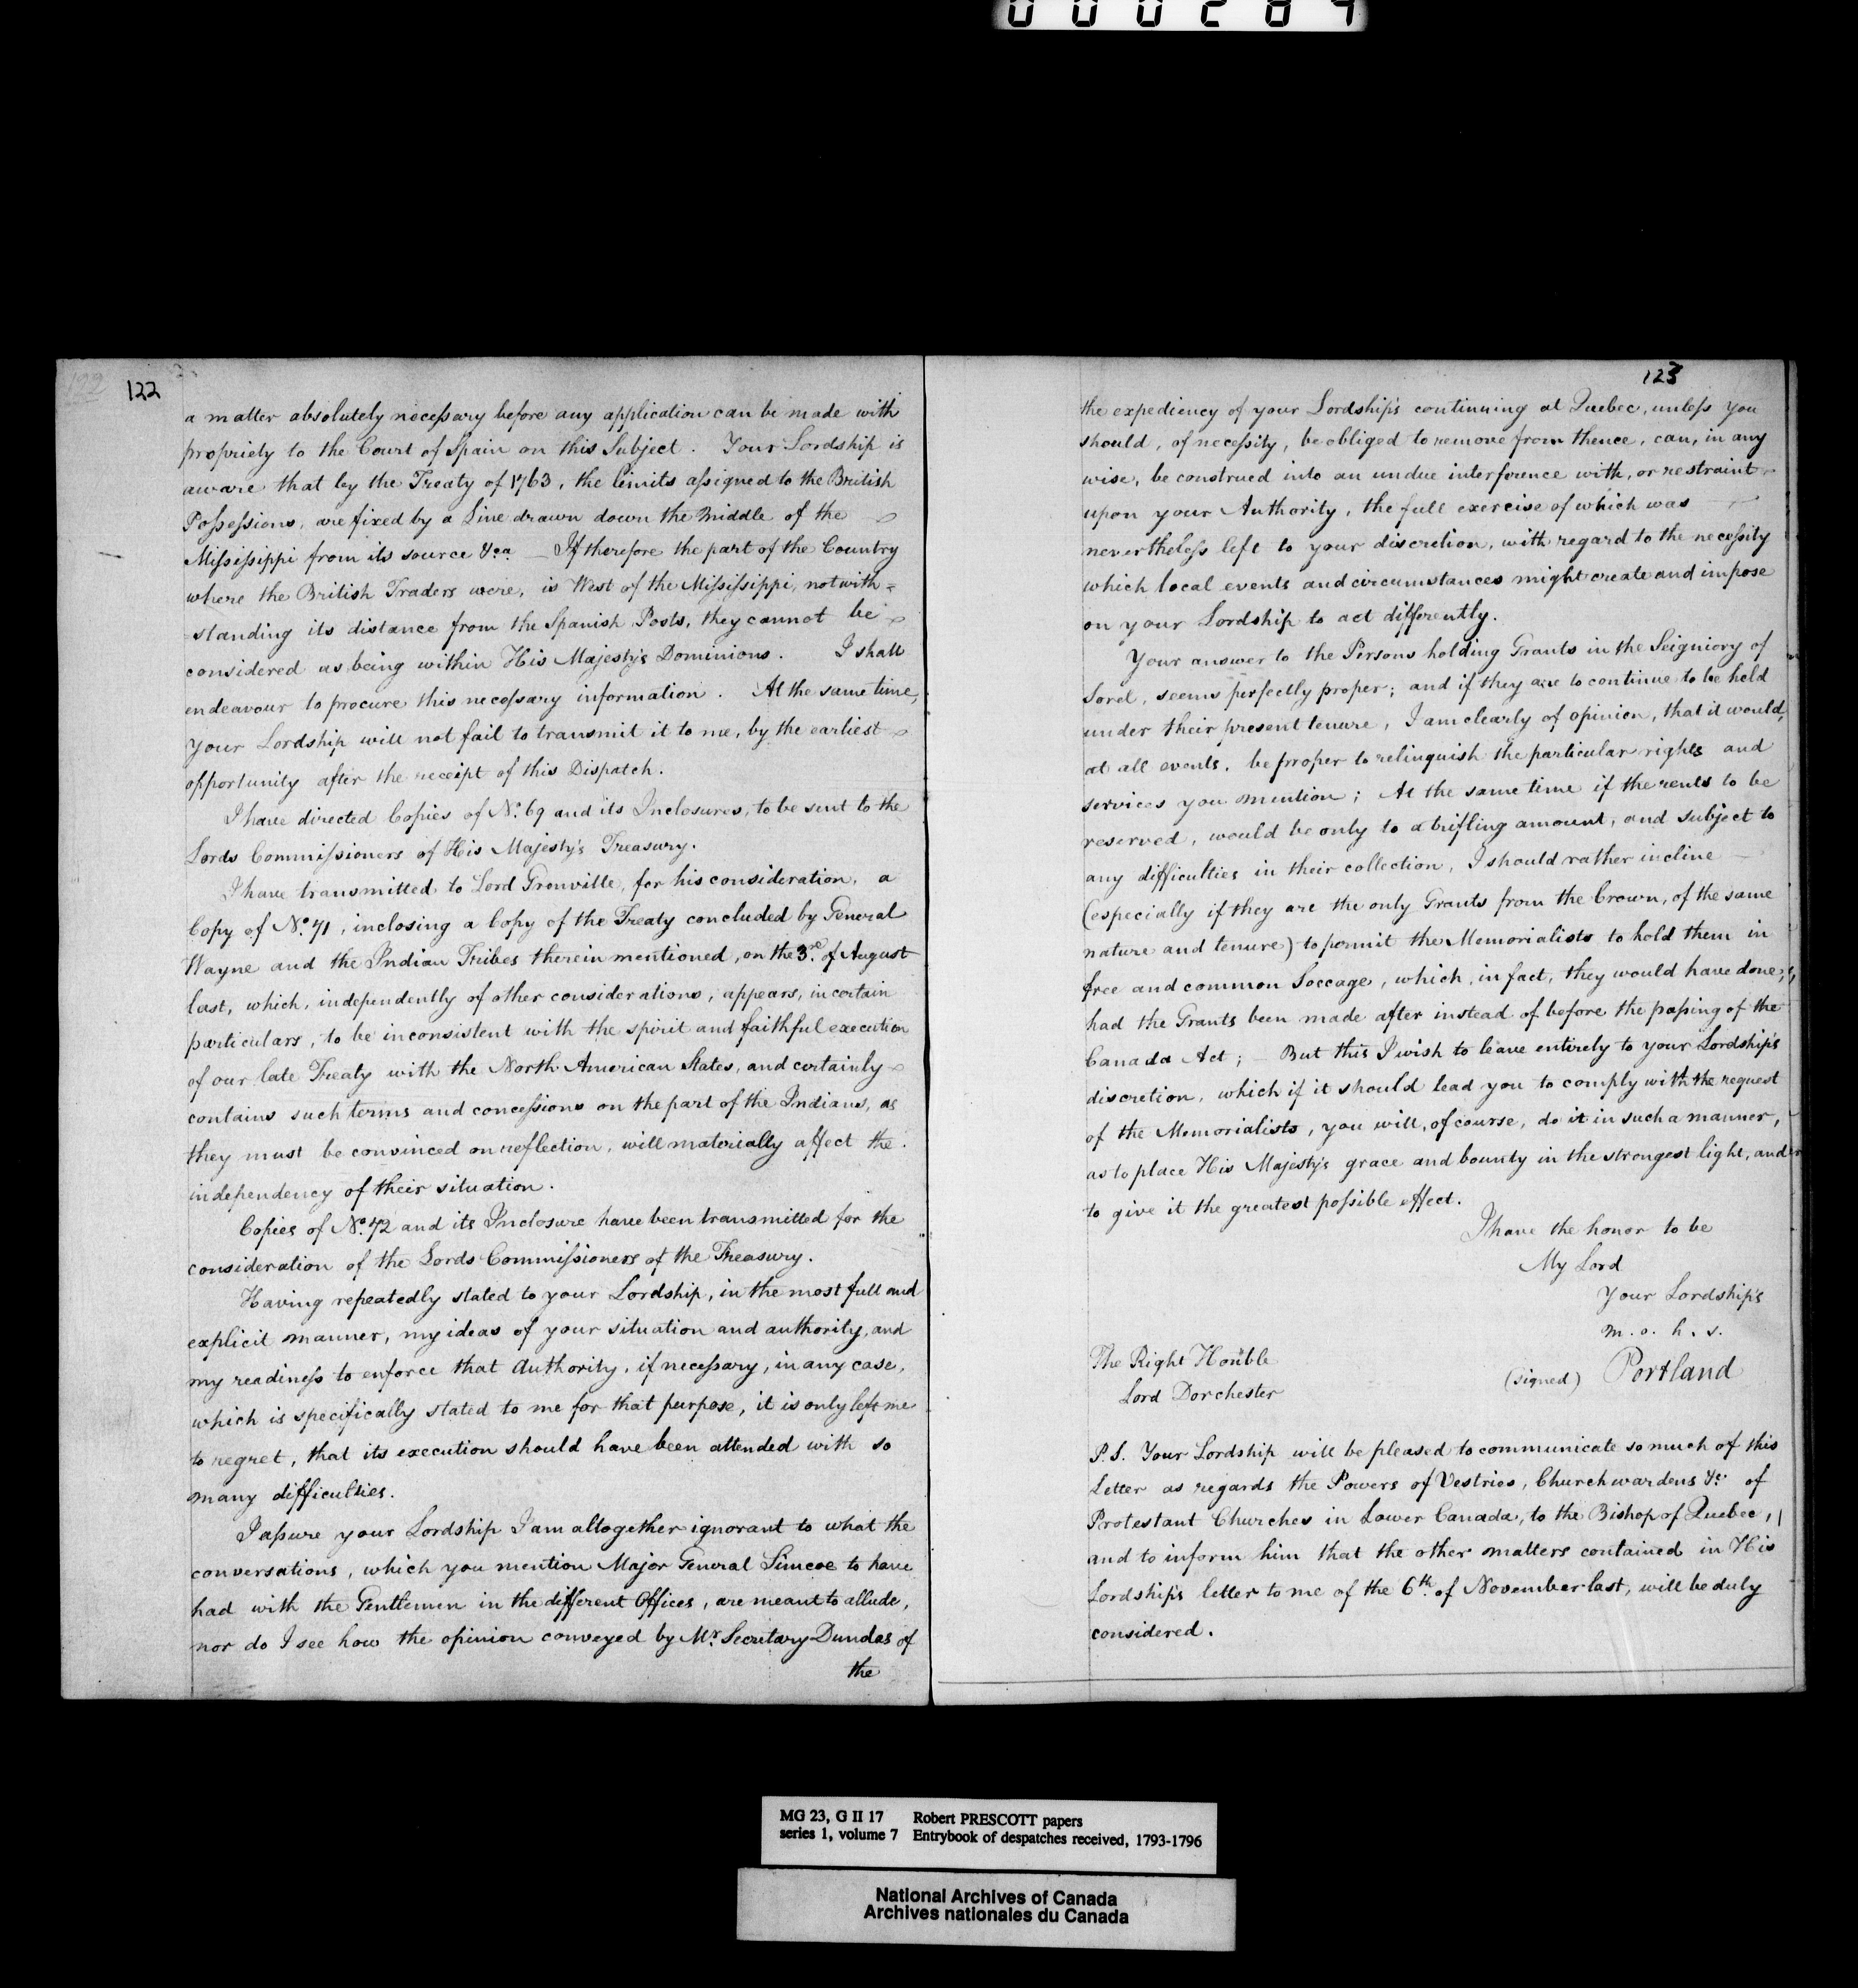 000289
122
a matter absolutely necessary before any application can be made with
propriety to the Court of Spain on this Subject. Your Lordship is
aware that by the Treaty of 1763, the limits assigned to the British
Possessions, are fixed by a Line drawn down the Middle of the
Missisippi from its source &ca _ If therefore the part of the Country
where the British Traders were, is West of the Missisippi, notwith=
=standing its distance from the Spanish Posts, they cannot be
considered as being within His Majesty's Dominions. I shall
endeavour to procure this necessary information. At the same time,
your Lordship will not fail to transmit it to me, by the earliest
opportunity after the receipt of this Dispatch.
I have directed Copies of No. 69 and its Inclosures, to be sent to the
Lords Commissioners of His Majesty's Treasury.
I have transmitted to Lord Grenville, for his consideration, a
Copy of No. 71, inclosing a Copy of the Treaty concluded by General
Wayne and the Indian Tribes therein mentioned, on the 3rd of August
last, which, independently of other considerations, appears, in certain
particulars, to be inconsistent with the spirit and faithful execution
of our late Treaty with the North American States, and certainly
contains such terms and concessions on the part of the Indians, as
they must be convinced on reflection, will materially affect the
independency of their situation.
Copies of No. 72 and its Inclosure have been transmitted for the
consideration of the Lords Commissioners of the Treasury.
Having repeatedly stated to your Lordship, in the most full and
explicit manner, my ideas of your situation and authority, and
my readiness to enforce that Authority, if necessary, in any case,
which is specifically stated to me for that purpose, it is only left me
to regret, that its execution should have been attended with so
many difficulties.
I assure your Lordship I am altogether ignorant to what the
conversations, which you mention Major General Simcoe to have
had with the Gentlemen in the different Offices, are meant to allude,
nor do I see how the opinion conveyed by Mr. Secretary Dundas of
the
123
the expediency of your Lordship's continuing at Quebec, unless you
should, of necessity, be obliged to remove from thence, can, in any
wise, be construed into an undue interference with, or restraint
upon your Authority, the full exercise of which was
nevertheless left to your discretion, with regard to the necessity
which local events and circumstances might create and impose
on your Lordship to act differently.
Your answer to the Persons holding Grants in the Seigniory of
Sorel, seems perfectly proper; and if they are to continue to be held
under their present tenure, I am clearly of opinion, that it would,
at all events, be proper to relinquish the particular rights and
services you mention; At the same time if the rents to be
reserved, would be only to a trifling amount, and subject to
any difficulties in their collection, I should rather incline
(especially if they are the only Grants from the Crown, of the same
nature and tenure) to permit the Memorialists to hold them in
free and common Soccage, which, in fact, they would have done,
had the Grants been made after instead of before the passing of the
Canada Act; _ But this I wish to leave entirely to your Lordship's
discretion, which if it should lead you to comply with the request
of the Memorialists, you will, of course, do it in such a manner,
as to place His Majesty's grace and bounty in the strongest light, and
to give it the greatest possible effect.
I have the honor to be
My Lord
Your Lordship's
m. o. h. s.
(signed) Portland
The Right Honble
Lord Dorchester
P.S. Your Lordship will be pleased to communicate so much of this
Letter as regards the Powers of Vestries, Churchwardens &c. of
Protestant Churches in Lower Canada, to the Bishop of Quebec,
and to inform him that the other matters contained in His
Lordship's letter to me of the 6th. of November last, will be duly
considered.
MG 23, G II 17 Robert PRESCOTT papers
series 1, volume 7 Entrybook of despatches received, 1793-1796
National Archives of Canada
Archives nationales du Canada